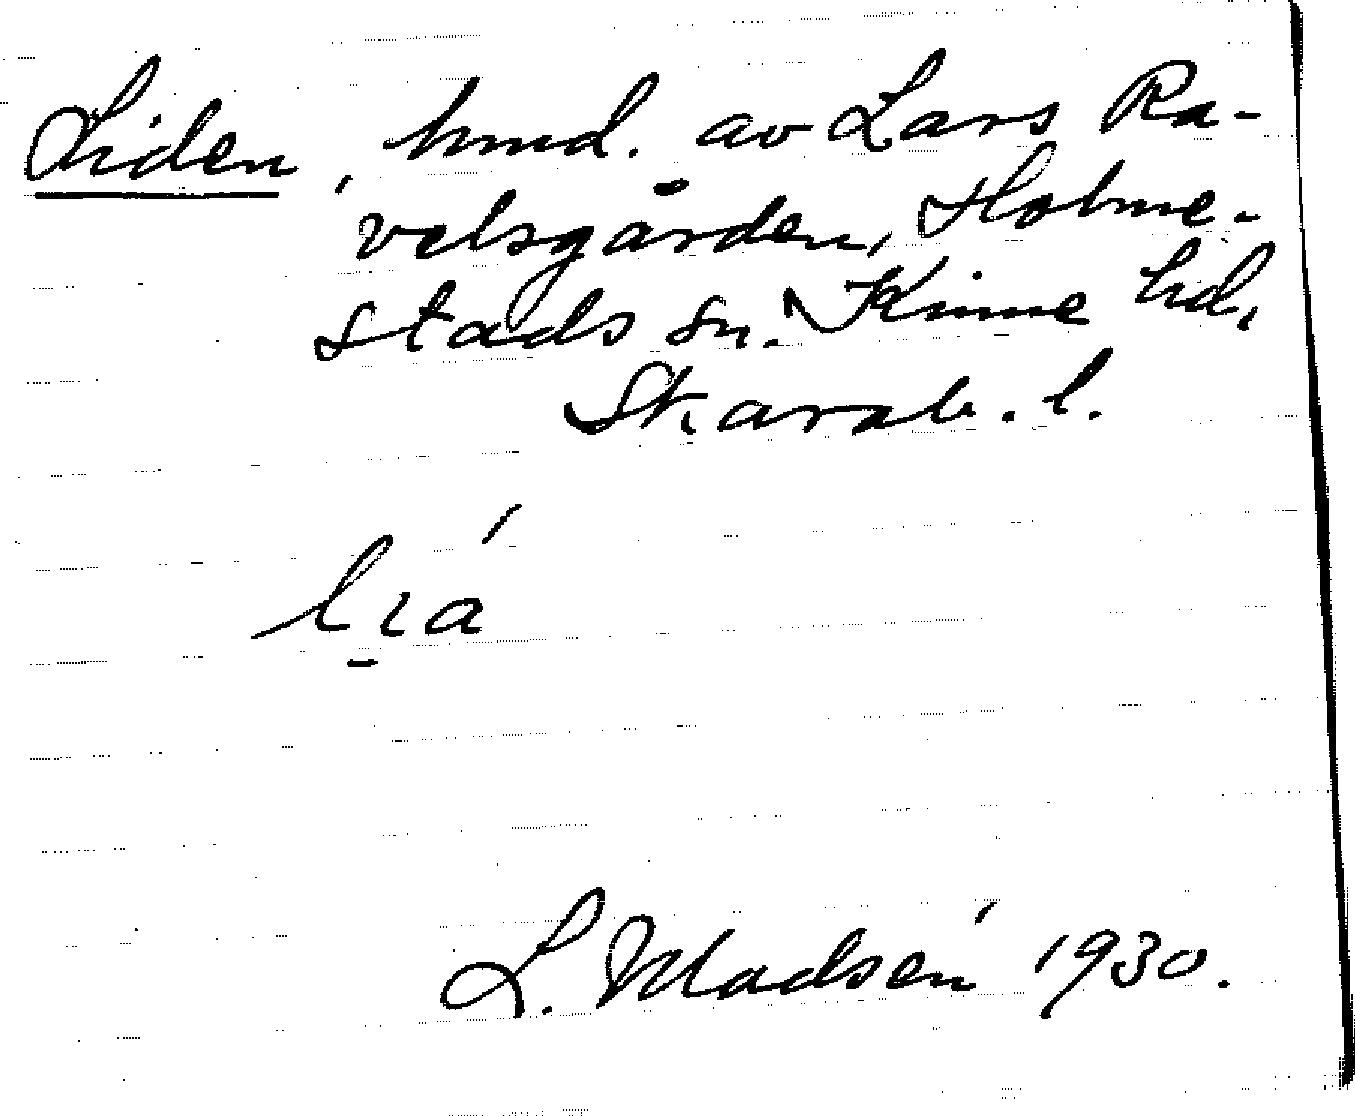 Liden, hmd. av Lars Ra-
velsgården, Holme-
stads sn. Kinne hd,
Skarab. l.
L. Madsén 1930.